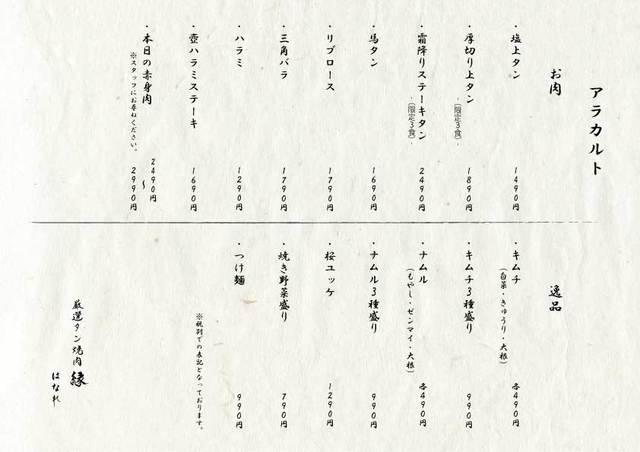 アラカルト
お肉
・塩上タン 1490円
・厚切り上タン -(限定3食)- 1890円
・霜降りステーキタン -(限定3食)- 2490円
・馬タン 1690円
・リブロース 1790円
・三角バラ 1790円
・ハラミ 1290円
・壺ハラミステーキ 1690円
・本日の赤身肉 2490円〜2990円
※スタッフにお尋ねください。
逸品
・キムチ 各490円
(白菜・きゅうり・大根)
・キムチ3種盛り 990円
・ナムル 各490円
(もやし・ゼンマイ・大根)
・ナムル3種盛り 990円
・桜ユッケ 1290円
・焼き野菜盛り 790円
・つけ麺 990円
※税別での表記となっております。
厳選タン焼肉 縁
はなれ